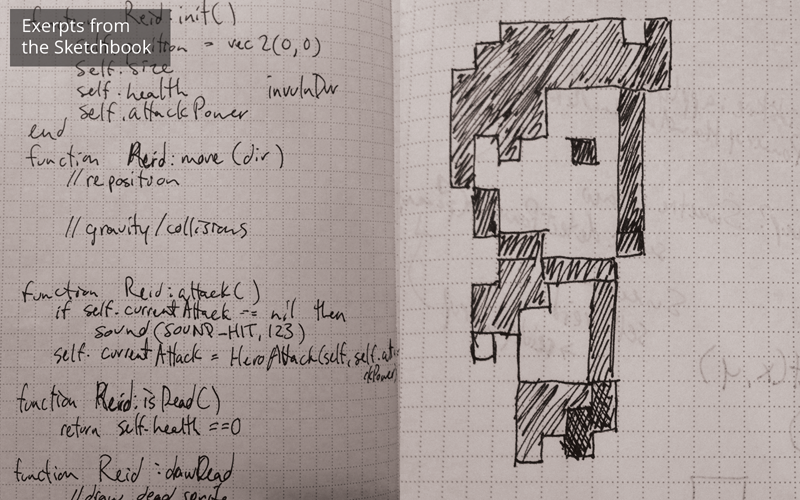 Exerpts from
the Sketchbook
function Reid:init()
position = vec2(0,0)
self.size
self.health invulnDur
self.attackPower
end
function Reid:move(dir)
//reposition
//gravity/collisions
function Reid:attack()
if self.currentAttack == nil then
sound(SOUND_HIT, 123)
self.currentAttack = HeroAttack(self, self.atta
ckPower)
function Reid:isDead()
return self.health ==0
function Reid:drawDead
//draw dead sprite